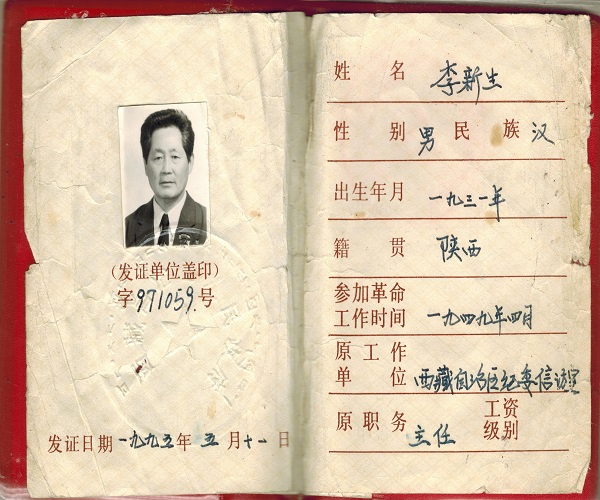 (发证单位盖印)
字971059.号
发证日期一九九五年五月十一日
姓名 李新生
性别 男 民族 汉
出生年月 一九三一年
籍贯 陕西
参加革命
工作时间 一九四九年四月
原工作
单位 西藏自治区纪委信访室
原职务 主任 工资
级别